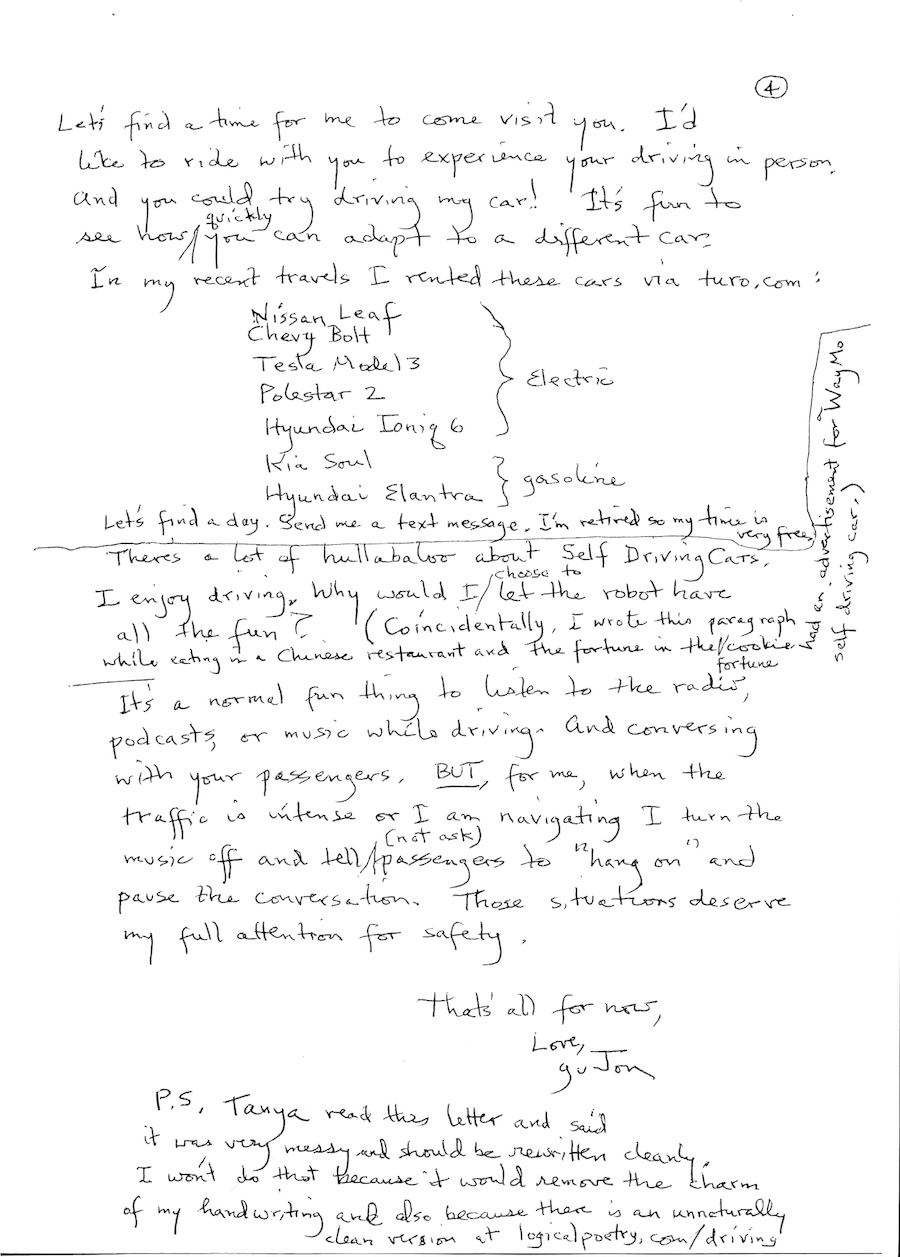 4
Let's find a time for me to come visit you. I'd
like to ride with you to experience your driving in person.
And you could try driving my car! It's fun to
quickly
see how/you can adapt to a different car.
In my recent travels I rented these cars via turo.com:
Nissan Leaf
Chevy Bolt
Tesla Model 3
Polestar 2
Electric
Hyundai Ioniq 6
Kia Soul
gasoline
Hyundai Elantra
Let's find a day. Send me a text message. I'm retired so my time is
very free.
There's a lot of hullabaloo about Self Driving Cars.
choose to
I enjoy driving. Why would I/let the robot have
all the fun? (Coincidentally, I wrote this paragraph
while eating in a Chinese restaurant and the fortune in the/cookie
fortune
had an advertisement for WayMo
self driving car.)
It's a normal fun thing to listen to the radio,
podcasts, or music while driving. And conversing
with your passengers. BUT, for me, when the
traffic is intense or I am navigating I turn the
(not ask)
music off and tell/passengers to "hang on" and
pause the conversation. Those situations deserve
my full attention for safety.
That's all for now,
Love,
gu Jon
P.S. Tanya read this letter and said
it was very messy and should be rewritten cleanly.
I won't do that because it would remove the charm
of my handwriting and also because there is an unnaturally
clean version at logicalpoetry.com/driving